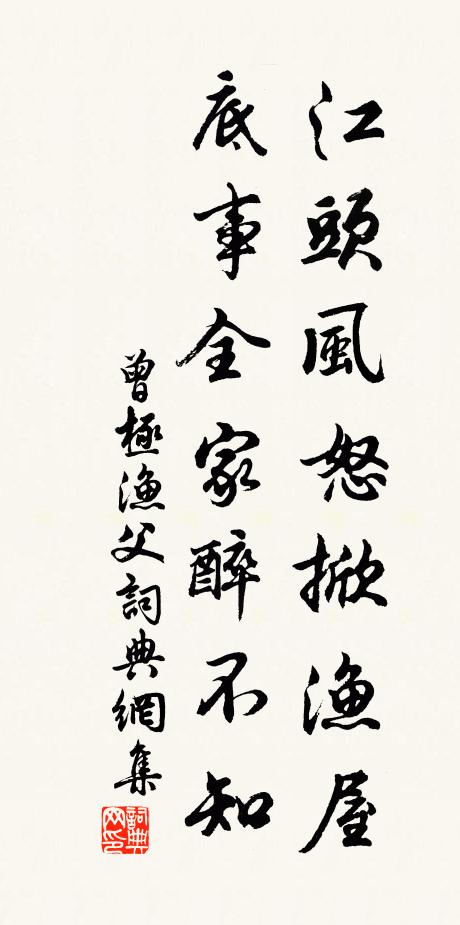 江頭風怒掀漁屋
底事全家醉不知
曾極漁父詞典網集
詞典網印